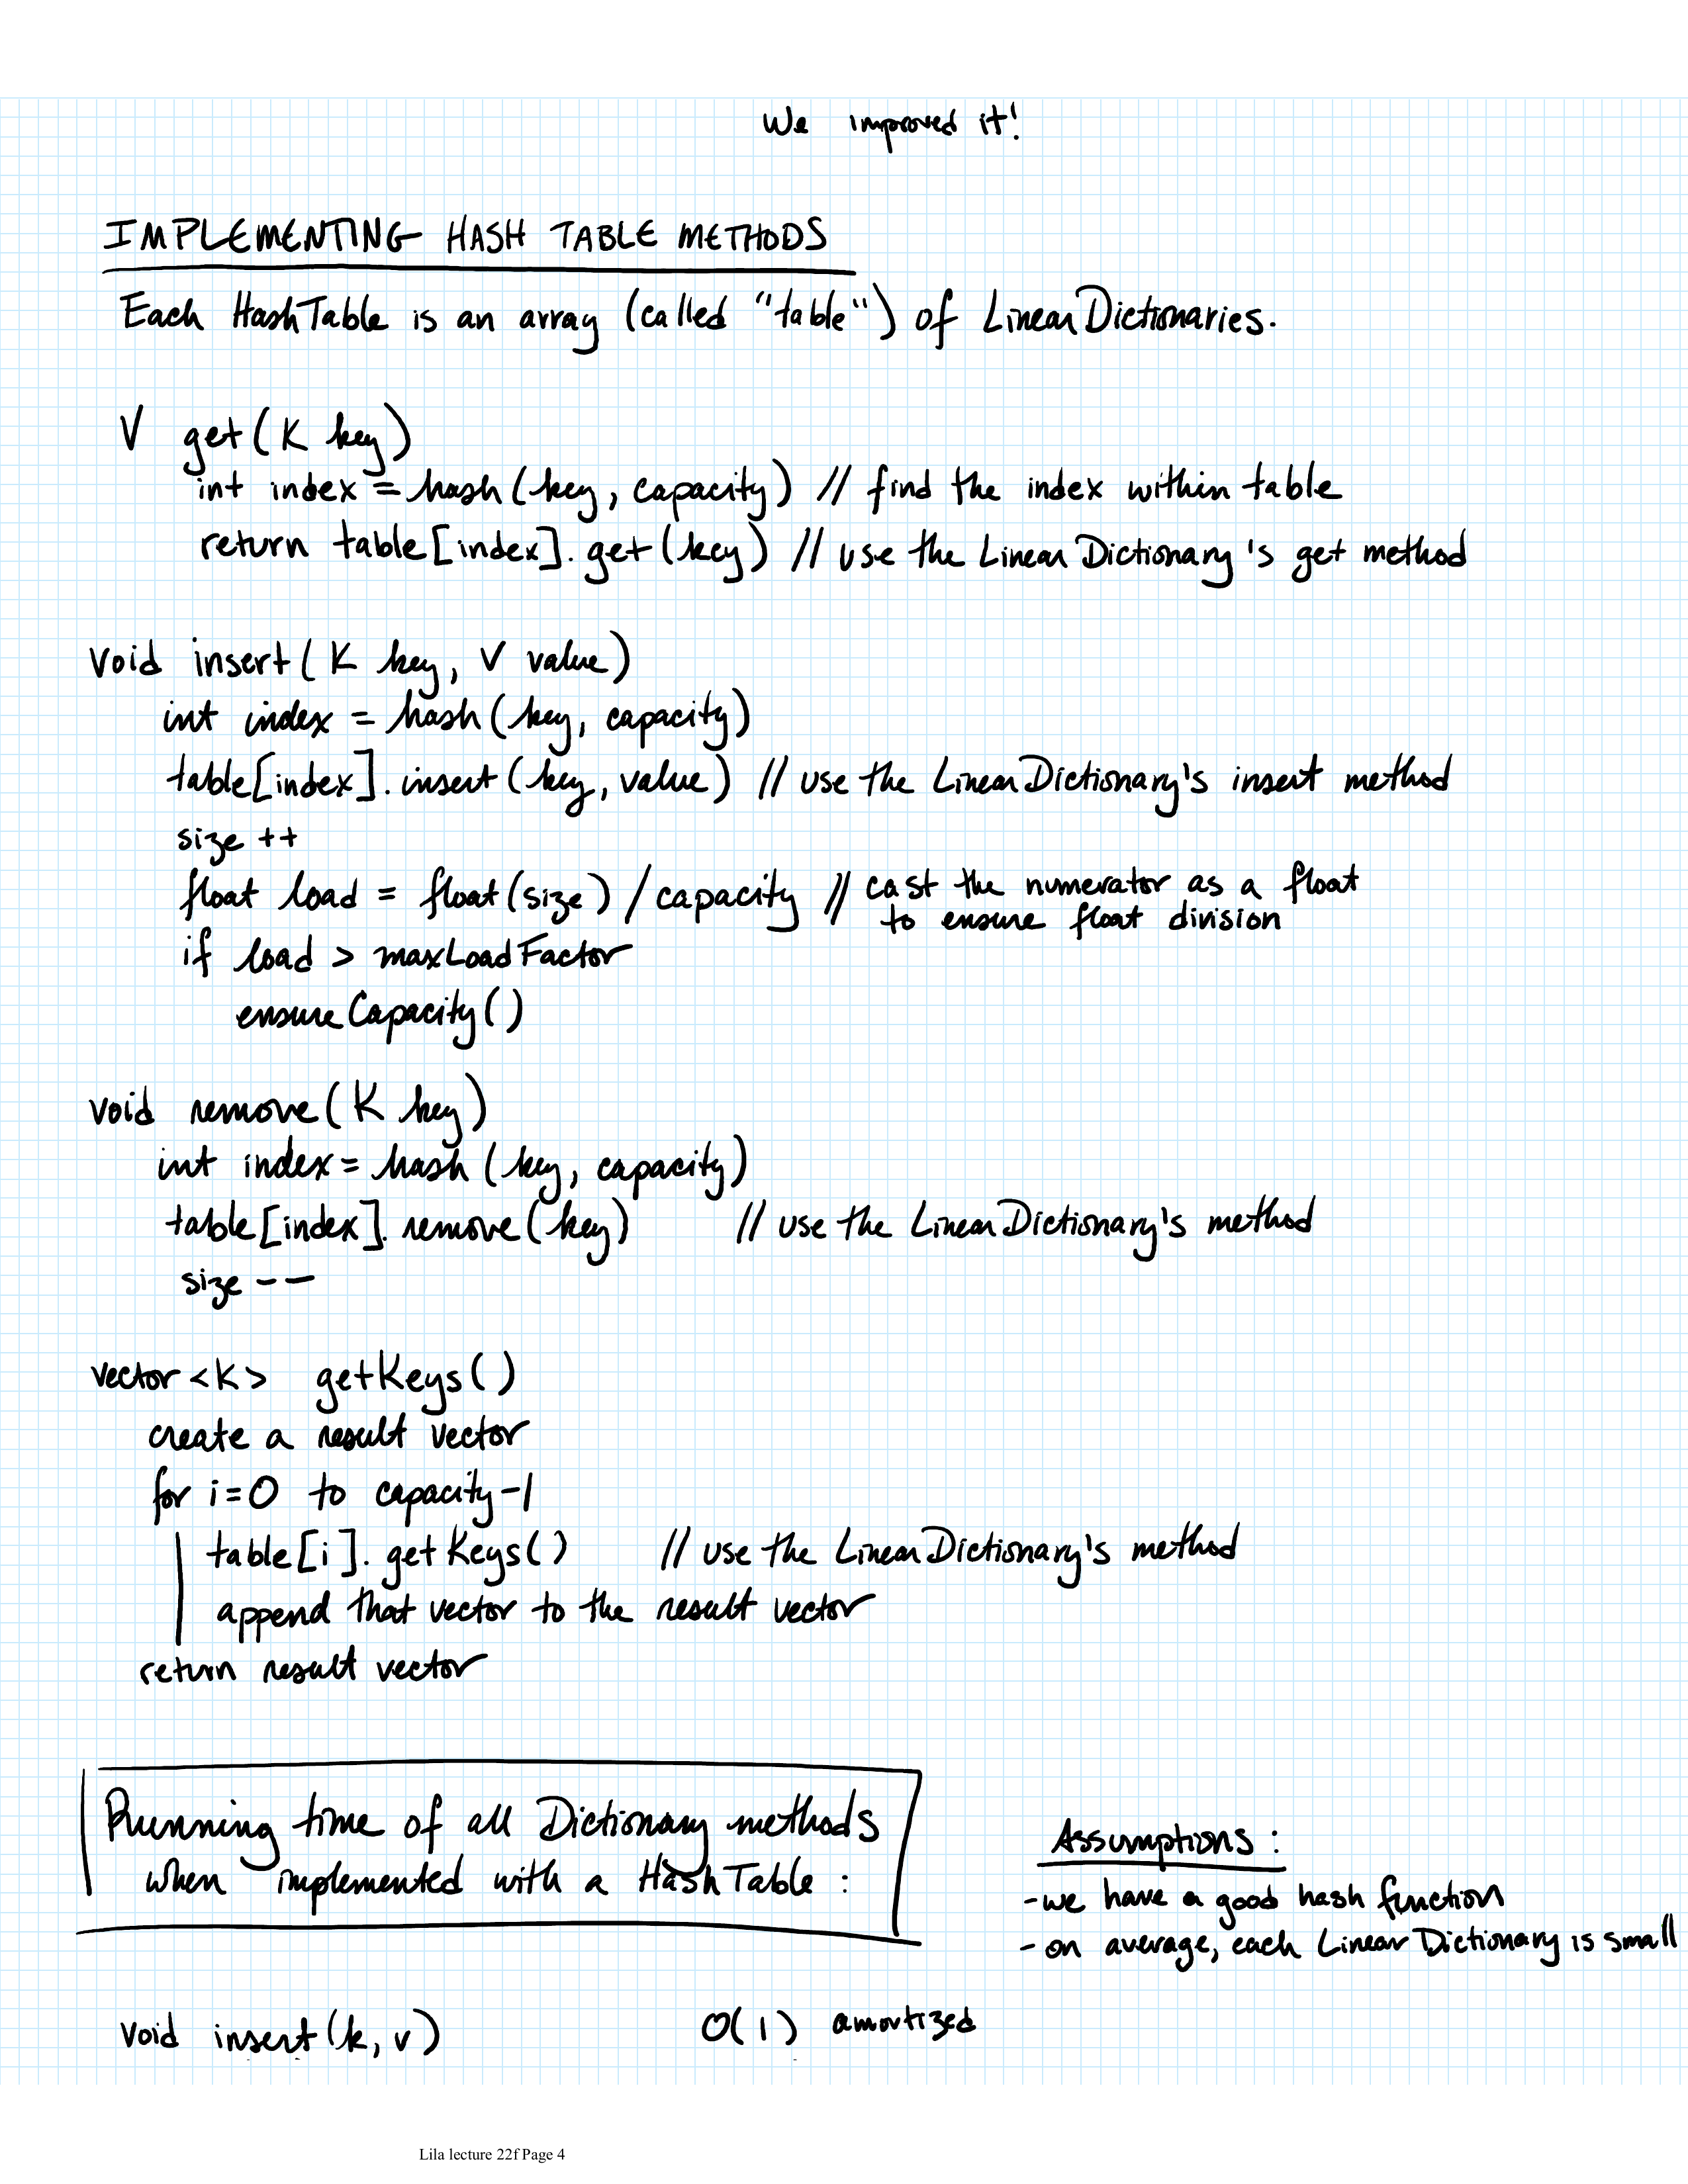 We improved it!
IMPLEMENTING HASH TABLE METHODS
Each HashTable is an array (called "table") of LinearDictionaries.
V get(K key)
int index = hash(key, capacity) // find the index within table
return table[index].get(key) // use the LinearDictionary's get method
void insert(K key, V value)
int index = hash(key, capacity)
table[index].insert(key, value) // use the LinearDictionary's insert method
size ++
float load = float(size) / capacity // cast the numerator as a float
to ensure float division
if load > maxLoadFactor
ensureCapacity()
void remove(K key)
int index = hash(key, capacity)
table[index].remove(key) // use the LinearDictionary's method
size --
vector<K> getKeys()
create a result vector
for i=0 to capacity-1
table[i].getKeys() // use the LinearDictionary's method
append that vector to the result vector
return result vector
Running time of all Dictionary methods
when implemented with a HashTable :
Assumptions :
- we have a good hash function
- on average, each LinearDictionary is small
void insert(k, v) O(1) amortized
Lila lecture 22f Page 4